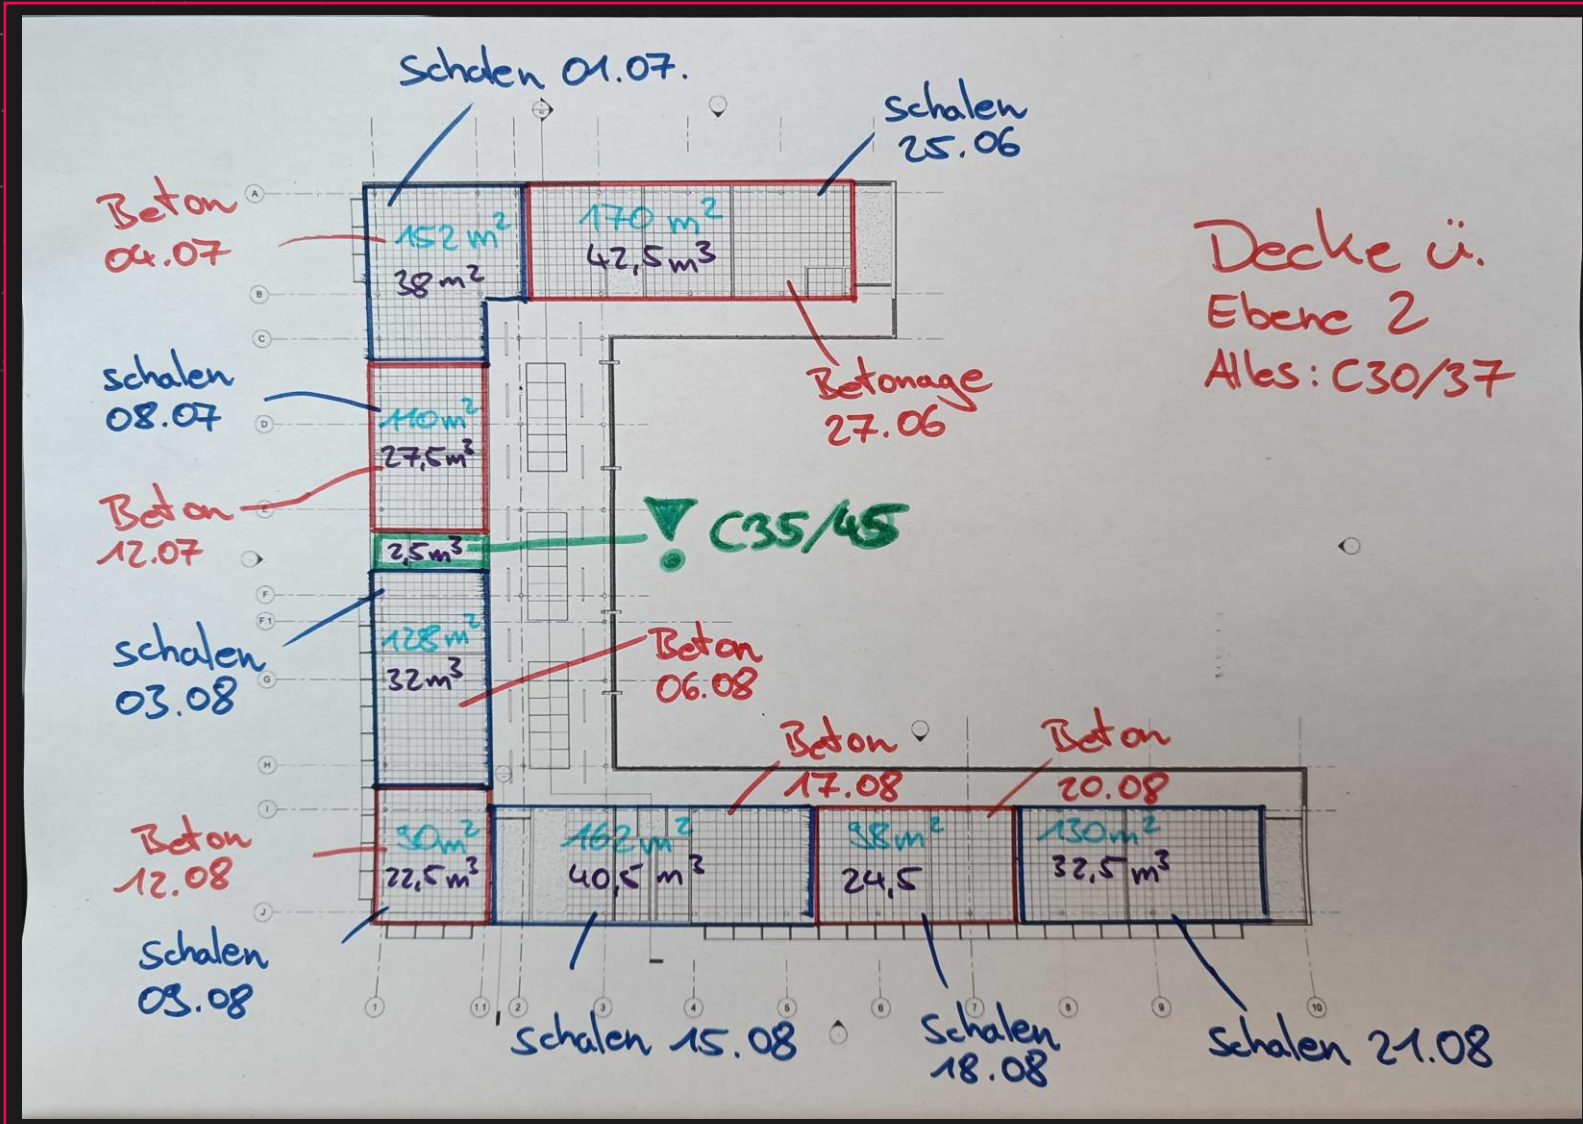 Schalen 01.07.
Schalen
25.06
Beton
04.07
152 m²
38 m²
170 m²
42,5 m³
Decke ü.
Ebene 2
Alles: C30/37
Schalen
08.07
110 m²
27,5 m³
Betonage
27.06
Beton
12.07
2,5 m³
! C35/45
Schalen
03.08
128 m²
32 m³
Beton
06.08
Beton
17.08
Beton
20.08
Beton
12.08
90 m²
22,5 m³
162 m²
40,5 m³
98 m²
24,5
130 m²
32,5 m³
Schalen
09.08
Schalen 15.08
Schalen
18.08
Schalen 21.08
A
B
C
D
E
F
F1
G
H
I
J
1
1.1
2
3
4
5
6
7
8
9
10